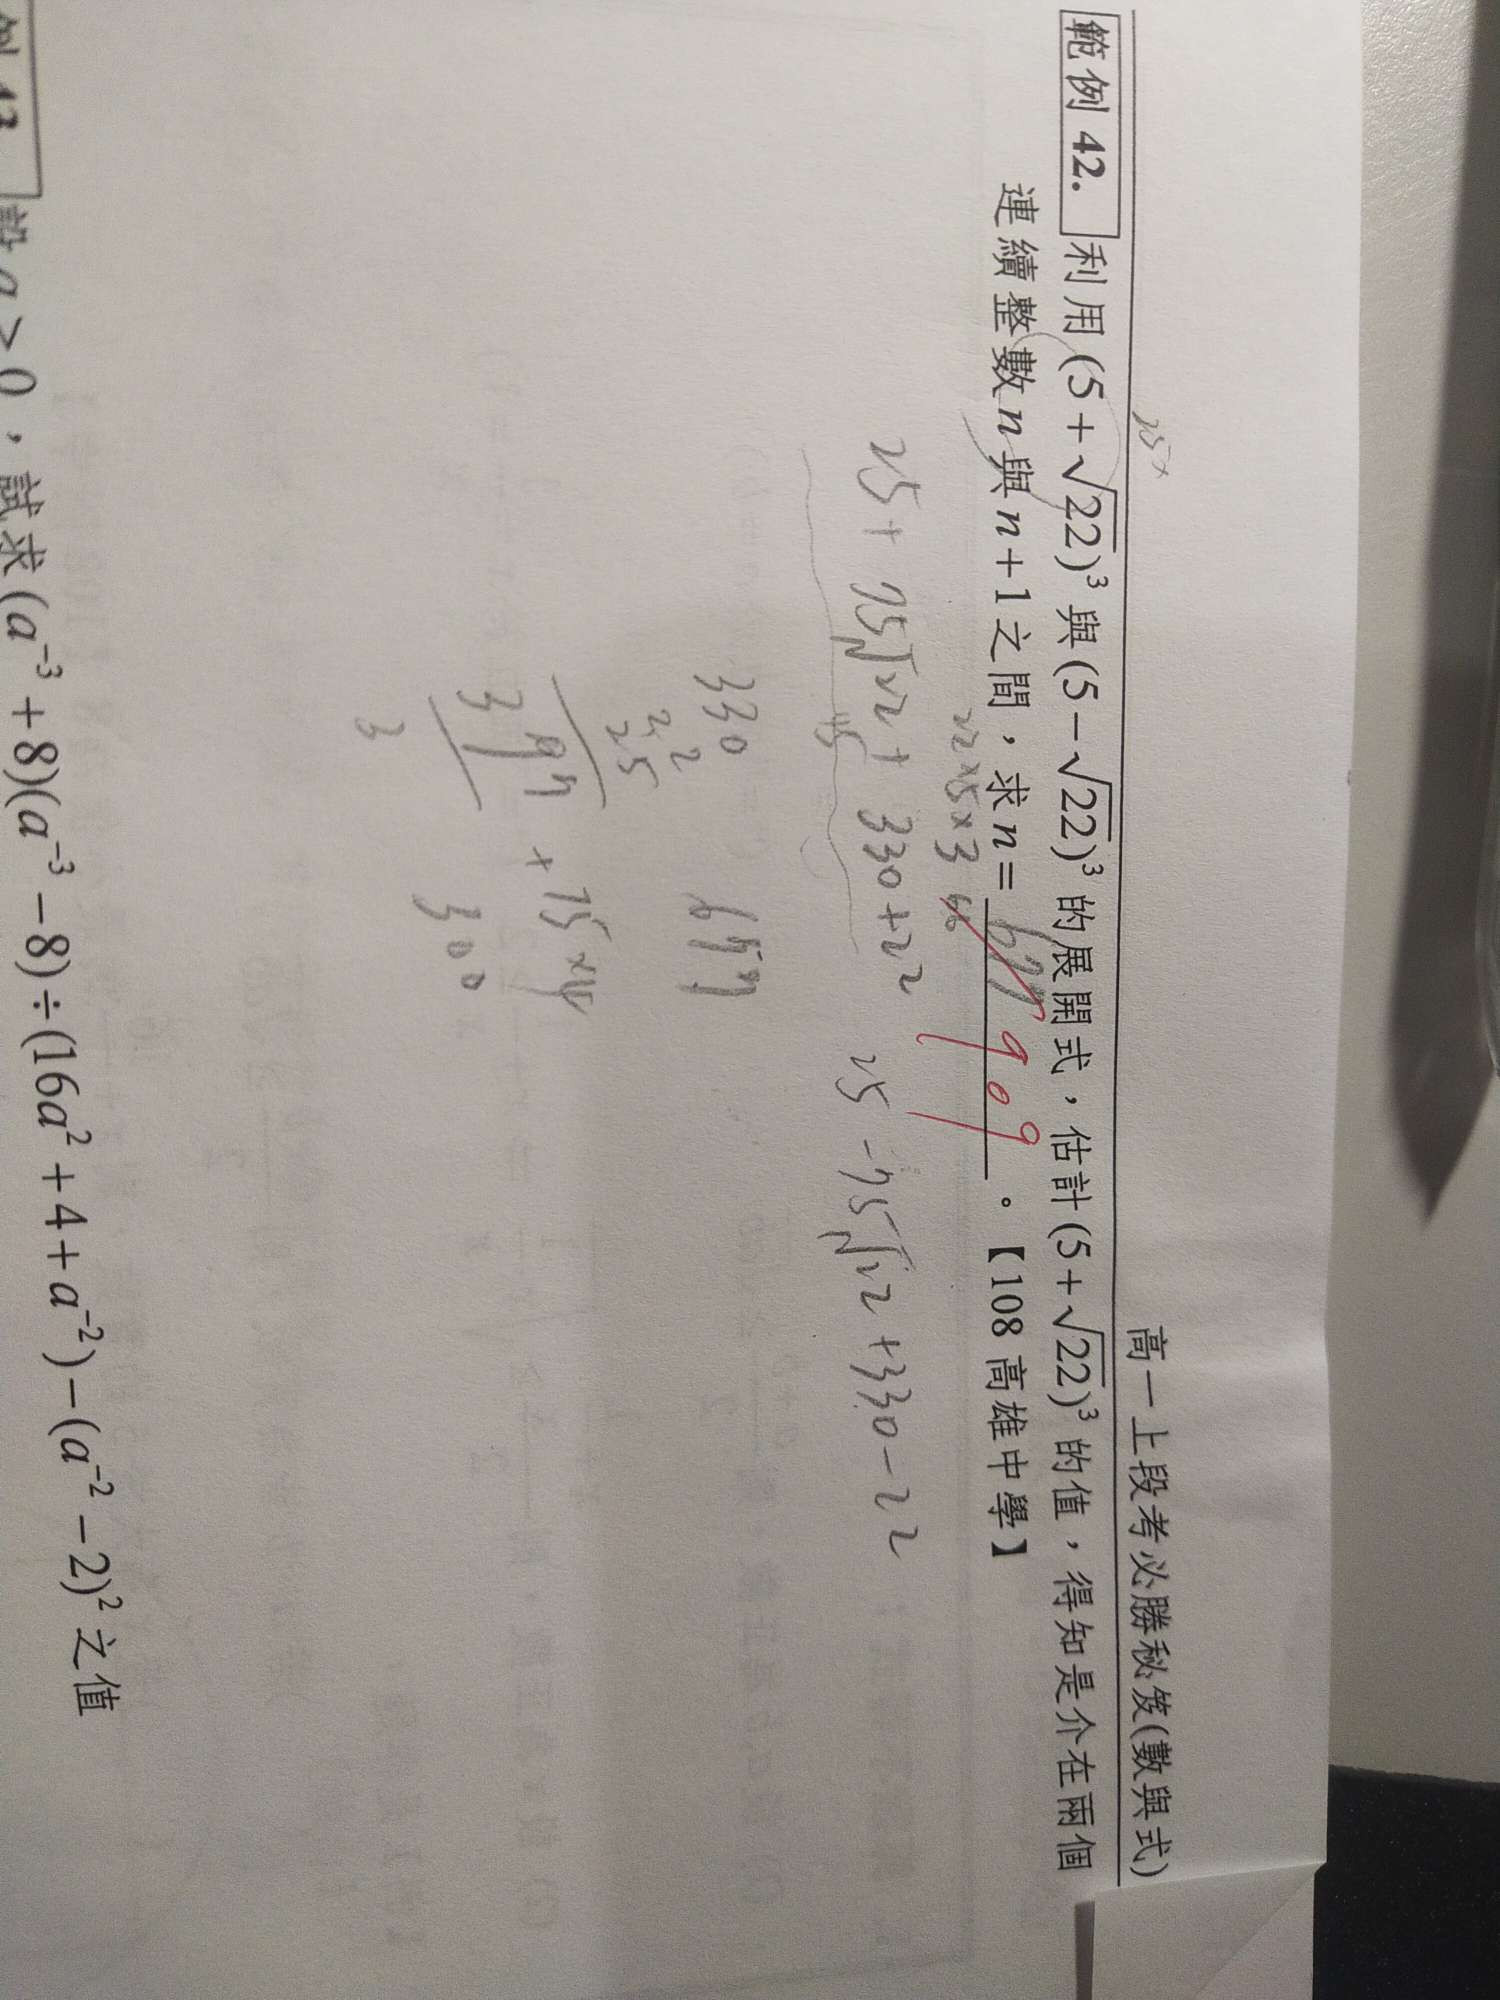 高一上段考必勝秘笈(數與式)
25+
範例 42. 利用(5+√22)³與(5−√22)³的展開式，估計(5+√22)³的值，得知是介在兩個
連續整數n與n+1之間，求n= 909 。【108高雄中學】
22×5×3
25+75√22+330+22 25-75√22+330-22
330
22
25
+75×4
300
3
設a>0，試求(a⁻³+8)(a⁻³−8)÷(16a²+4+a⁻²)−(a⁻²−2)²之值